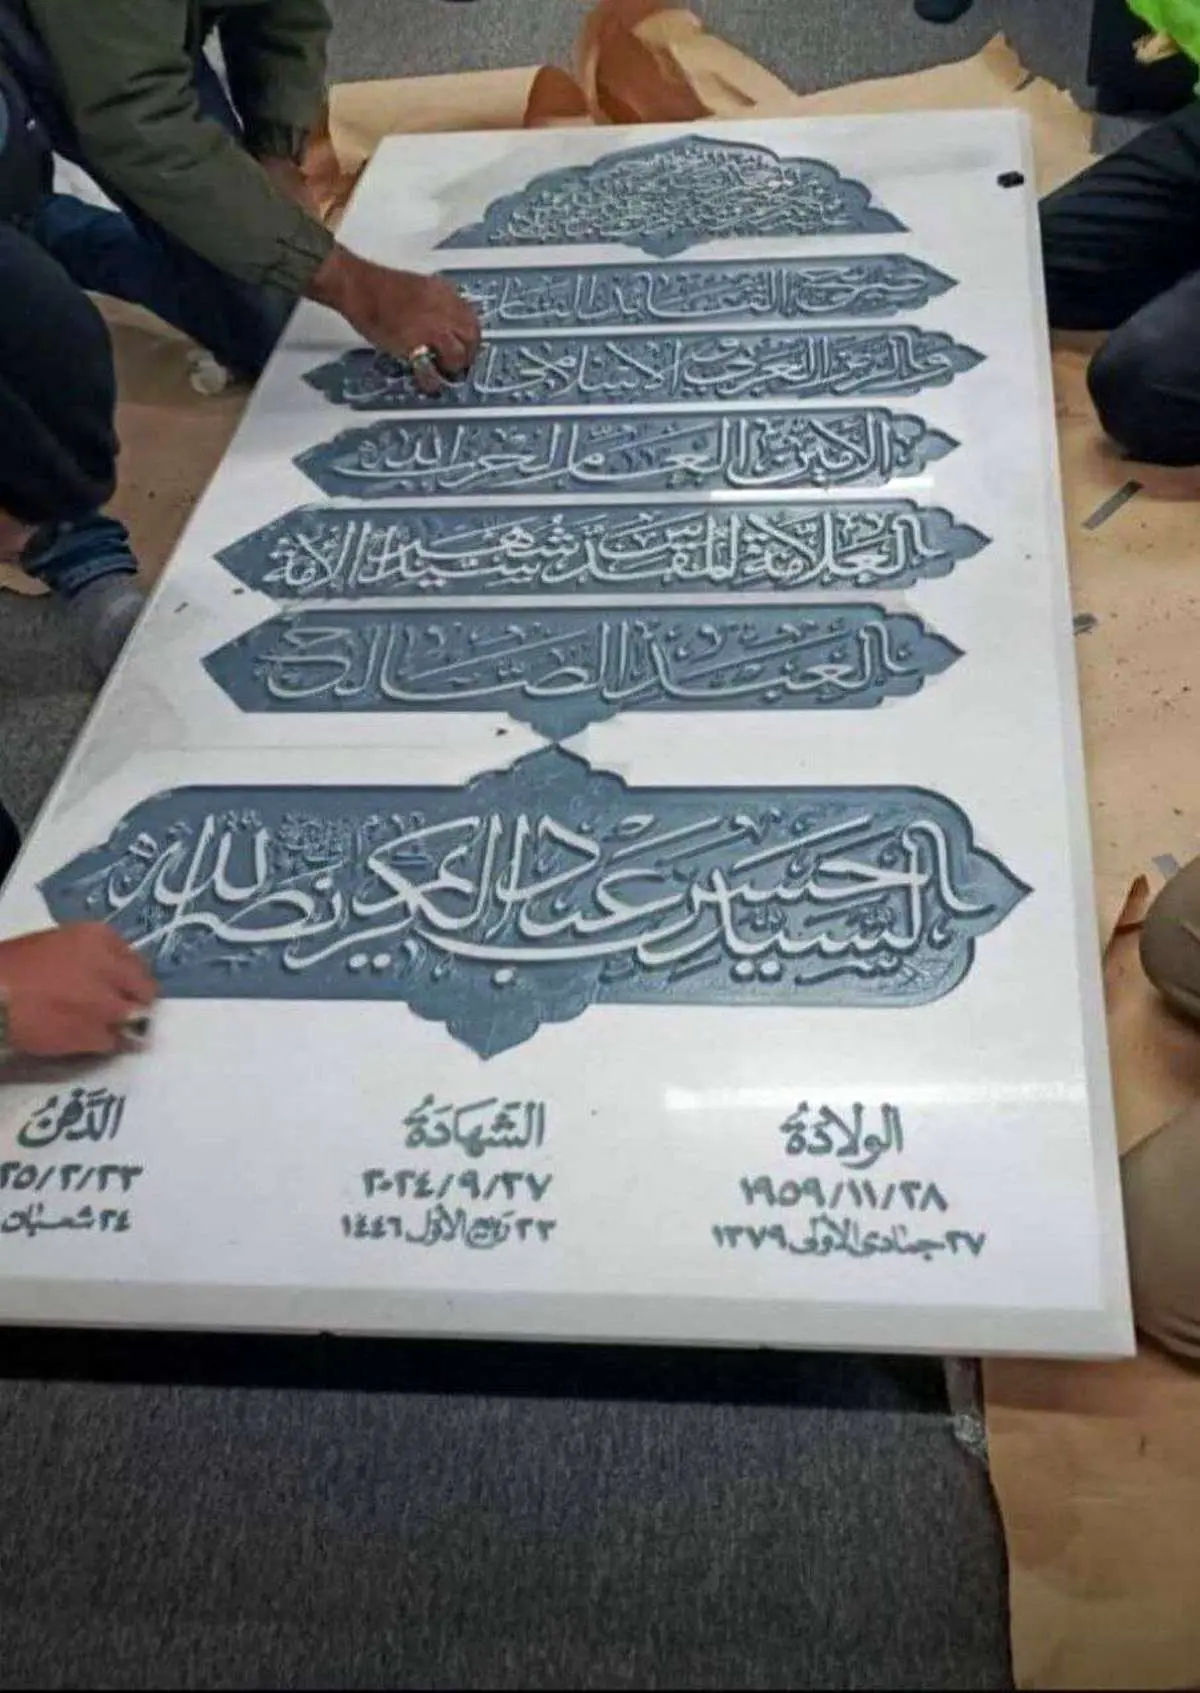 ضريح القائد التاريخي
والرمز العربي الإسلامي
الأمين العام لحزب الله
العلامة المقدس شهيد الأمة
العبد الصالح
السيد حسن عبد الكريم نصر الله
الولادة
١٩٥٩/١١/٢٨
٢٧ جمادى الأولى ١٣٧٩
الشهادة
٢٠٢٤/٩/٢٧
٢٣ ربيع الأول ١٤٤٦
الدفن
٢٥/٢/٢٣
٢٤ شعبان